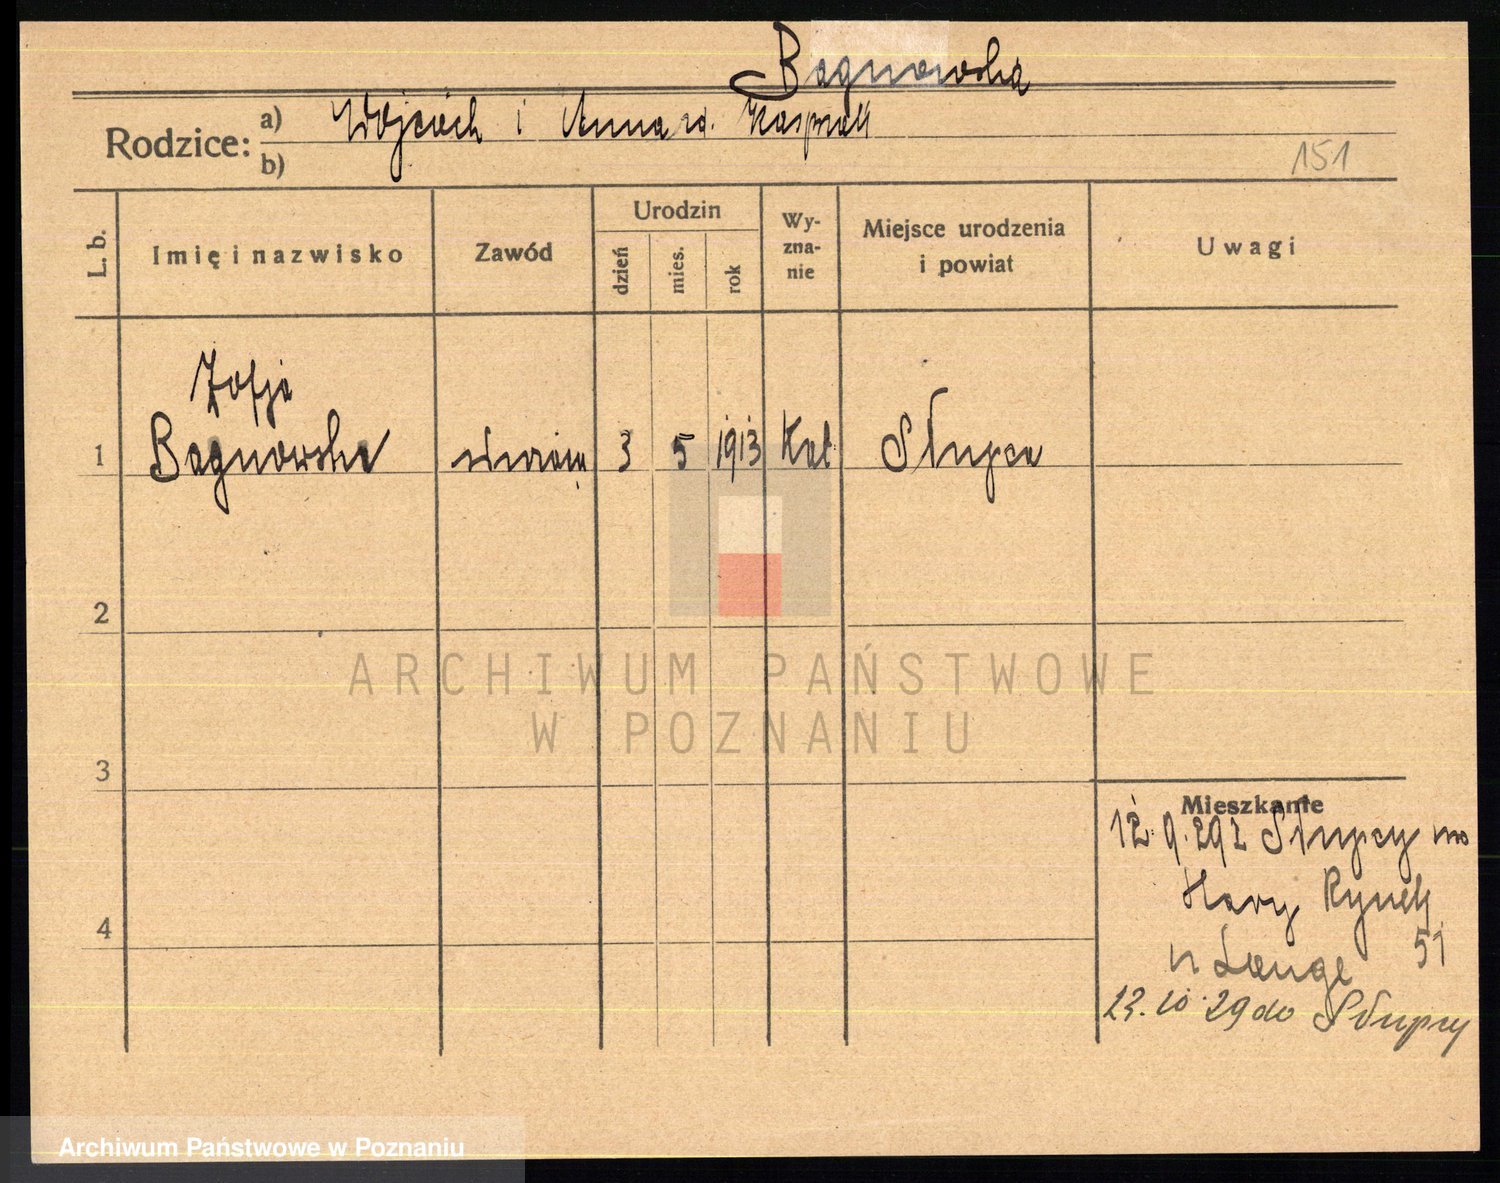 Bagnowska
Rodzice: a) Wojciech i Anna rd. Kasprzak
b)
151
L. b.
Imię i nazwisko
Zawód
Urodzin
dzień
mies.
rok
Wy-
zna-
nie
Miejsce urodzenia
i powiat
Uwagi
Zofja
1 Bagnowska służąca 3 5 1913 Kat Słupca
2
3
4
Mieszkanie
12.9.29 z Słupcy na
Stary Rynek
51
u Lange
12.10.29 do Słupcy
ARCHIWUM PAŃSTWOWE
W POZNANIU
Archiwum Państwowe w Poznaniu